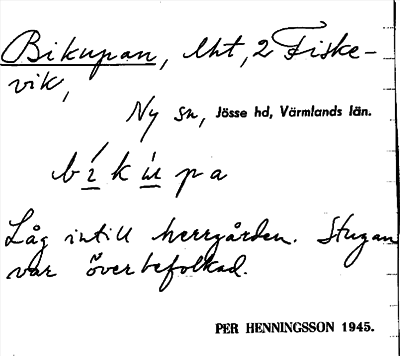 Bikupan, lht, 2 Fiske-
vik,
Ny sn, Jösse hd, Värmlands län.
bíkùpa
Låg intill herrgården. Stugan
var överbefolkad.
PER HENNINGSSON 1945.